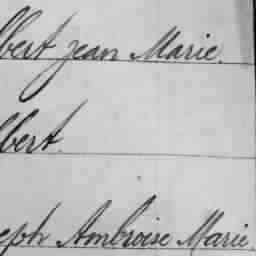 lbert Jean Marie.
lbert.
eph Ambroise Marie.